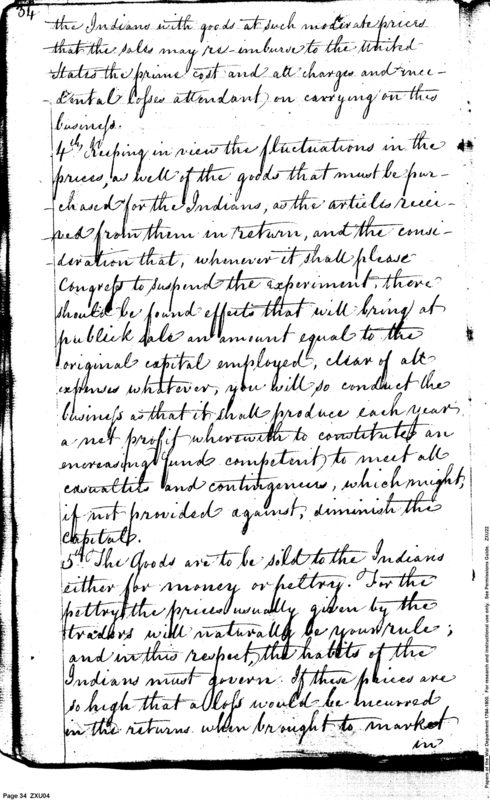 34
the Indians with goods at such moderate prices
that the sales may re-imburse to the United
States the prime cost and all charges and inci-
-dental losses attendant on carrying on this
business.
4th. Keeping in view the fluctuations in the
prices, as well of the goods that must be pur-
-chased for the Indians, as the articles recei-
-ved from them in return, and the consi-
-deration that, whenever it shall please
Congress to suspend the experiment, there
should be found effects that will bring at
publick sale an amount equal to the
original capital employed, clear of all
expenses whatever, you will so conduct the
business as that it shall produce each year
a net profit wherewith to constitute an
encreasing fund competent to meet all
casualties and contingencies, which might,
if not provided against, diminish the
capital.
5th The Goods are to be sold to the Indians
either for money or peltry. For the
peltry the prices usually given by the
traders will naturally be your rule;
and in this respect, the habits of the
Indians must govern. If these prices are
so high that a loss would be incurred
in the returns when brought to market
in
Page 34 ZXU04
Papers of the War Department 1784-1800. For research and instructional use only. See Permissions Guide. ZXU22